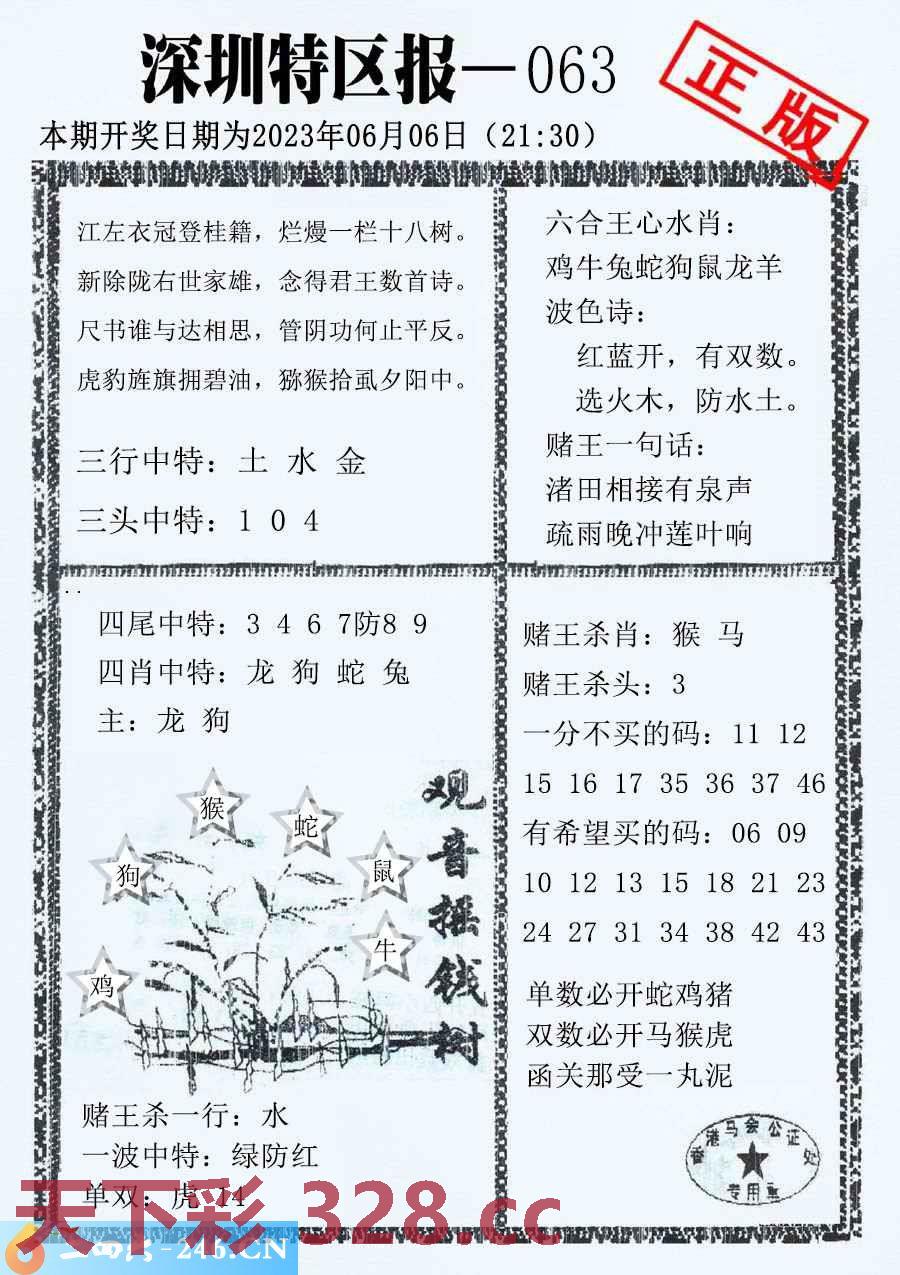 深圳特区报—063
正版
本期开奖日期为2023年06月06日（21:30）
江左衣冠登桂籍，烂熳一栏十八树。
新除陇右世家雄，念得君王数首诗。
尺书谁与达相思，管阴功何止平反。
虎豹旌旗拥碧油，猕猴拾虱夕阳中。
三行中特：土 水 金
三头中特：1 0 4
六合王心水肖：
鸡牛兔蛇狗鼠龙羊
波色诗：
红蓝开，有双数。
选火木，防水土。
赌王一句话：
渚田相接有泉声
疏雨晚冲莲叶响
四尾中特：3 4 6 7防8 9
四肖中特：龙 狗 蛇 兔
主：龙 狗
观音摇钱树
猴
蛇
狗
鼠
牛
鸡
赌王杀一行：水
一波中特：绿防红
单双：虎 14
赌王杀肖：猴 马
赌王杀头：3
一分不买的码：11 12
15 16 17 35 36 37 46
有希望买的码：06 09
10 12 13 15 18 21 23
24 27 31 34 38 42 43
单数必开蛇鸡猪
双数必开马猴虎
函关那受一丸泥
香港马会公证处
专用章
天下彩 328.cc
-246.CN